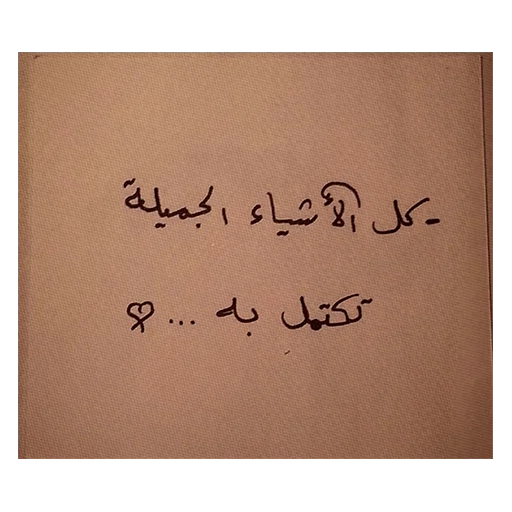 - كل الأشياء الجميلة
تكتمل به ... ♡